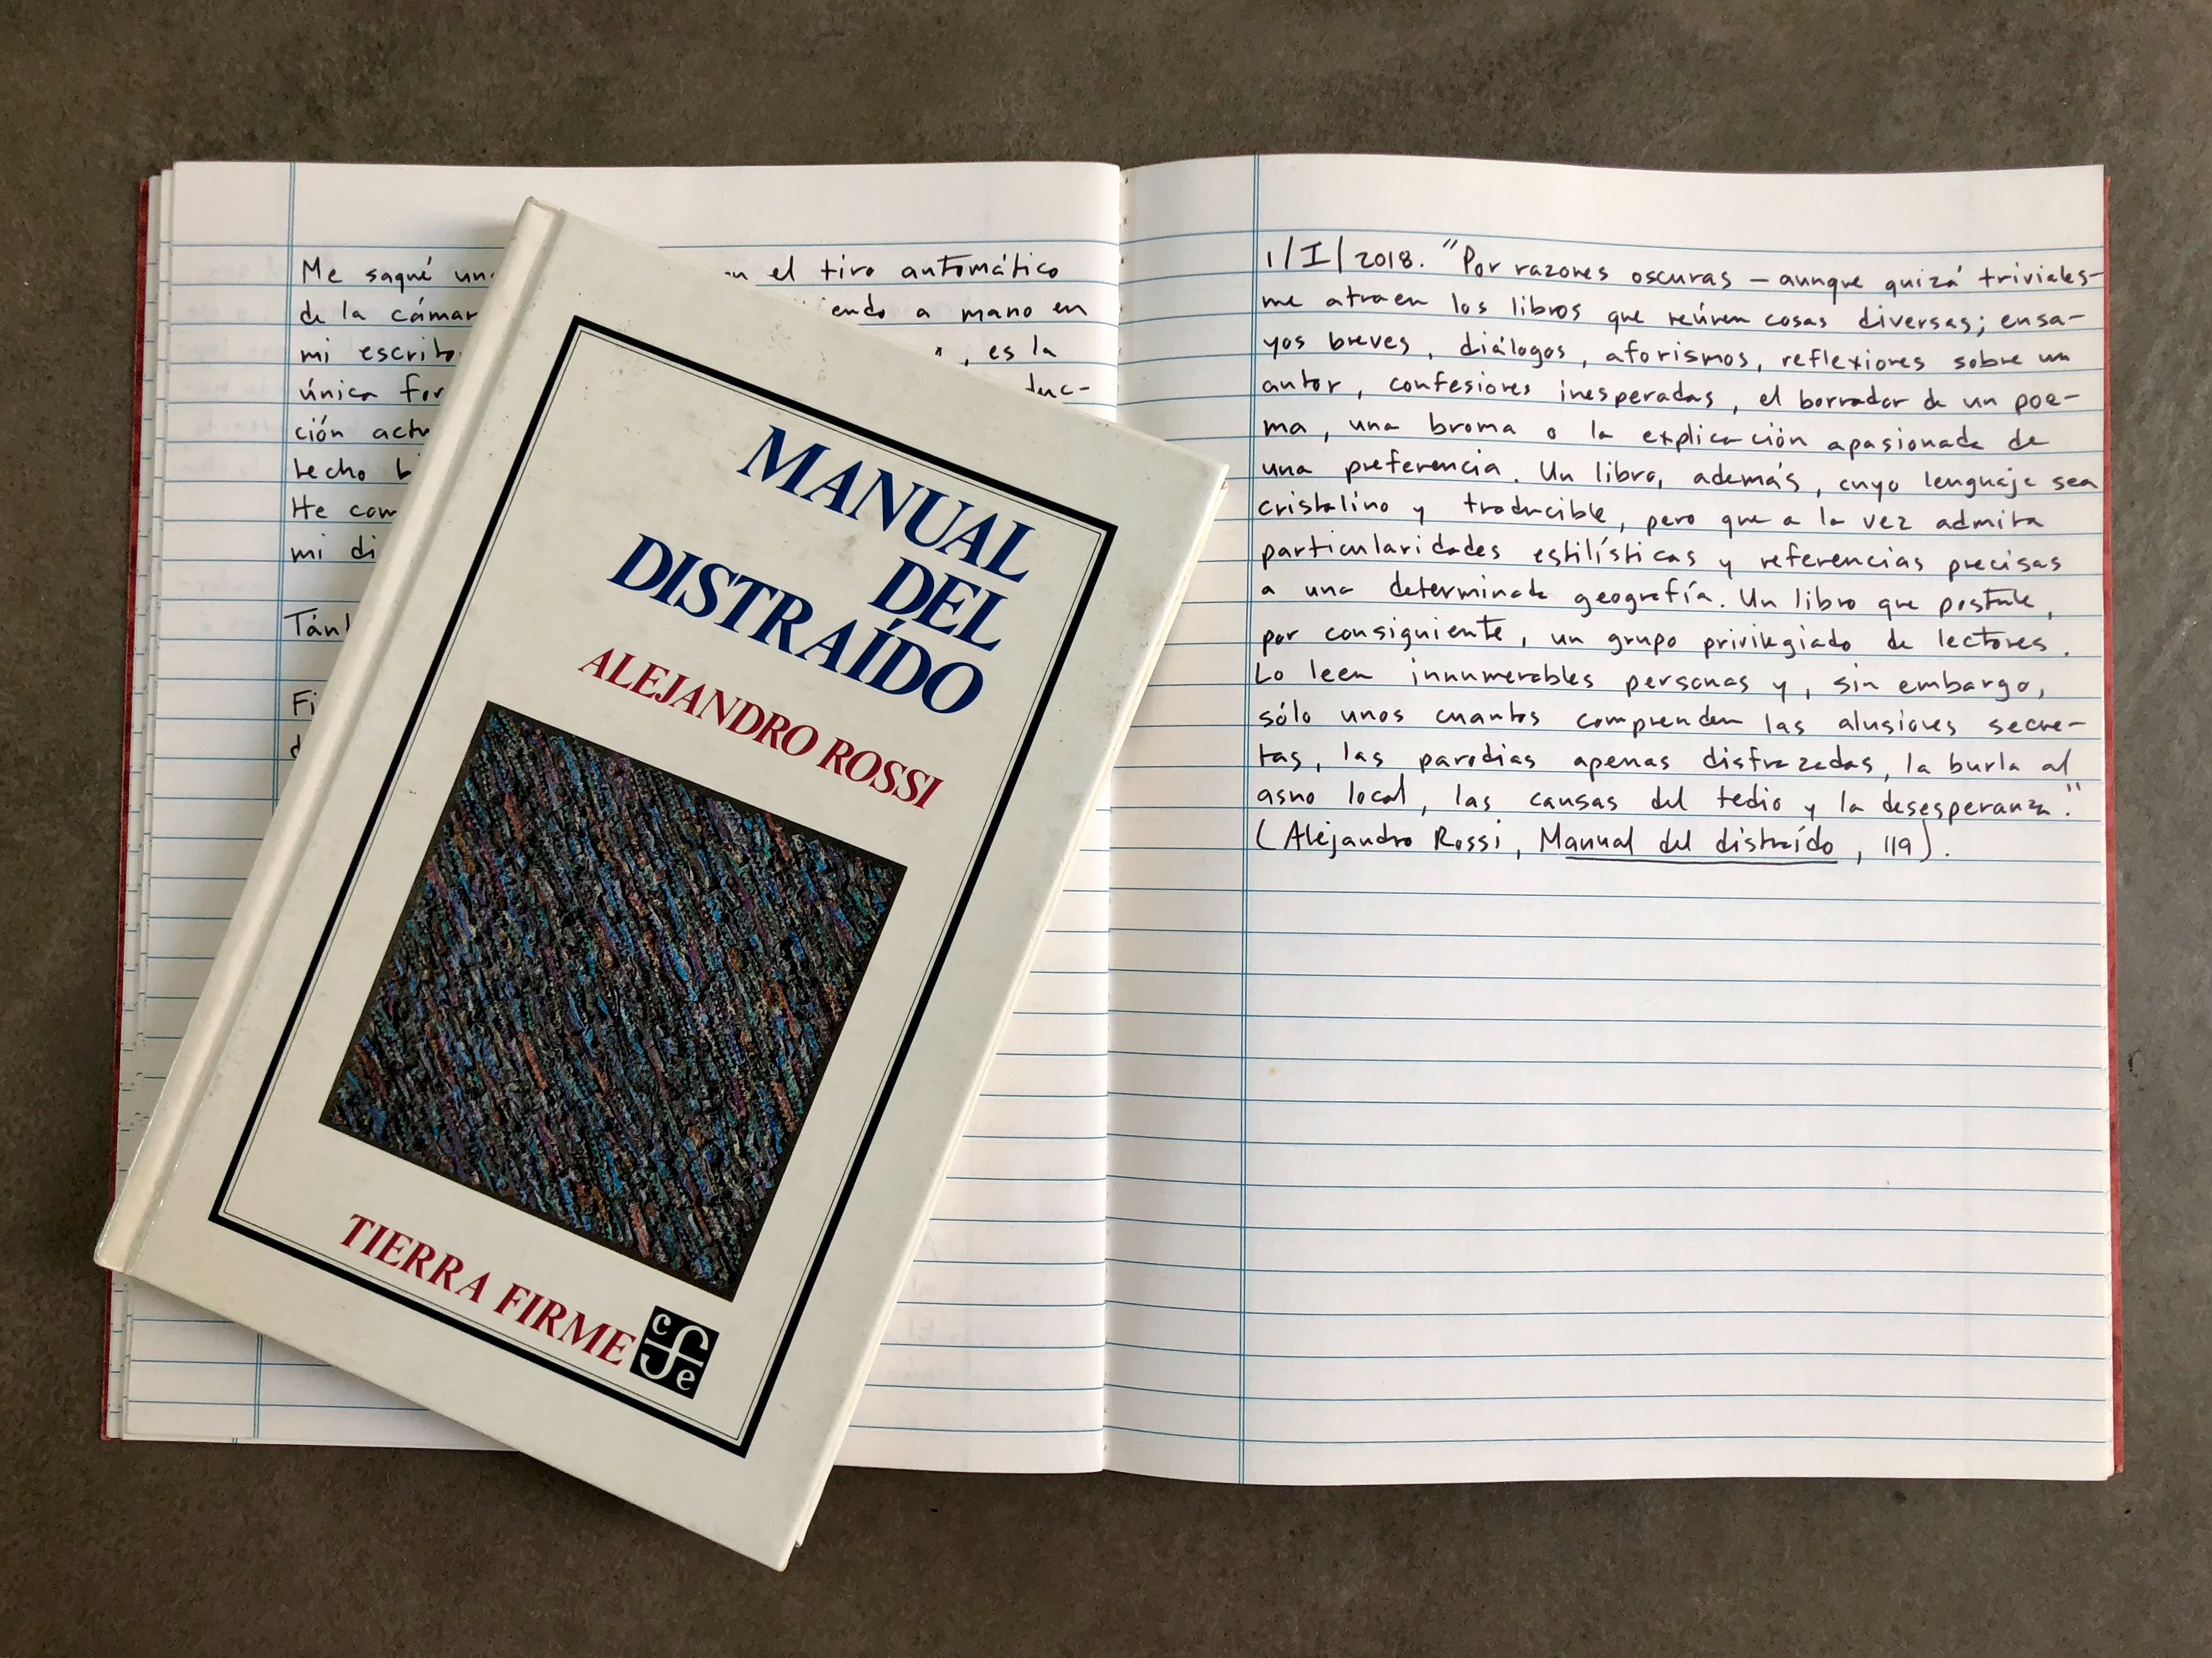 Me saqué un
el tiro automático
de la
endo a mano en
mi
, es la
única
duc-
ción
He
mi
MANUAL
DEL
DISTRAÍDO
ALEJANDRO ROSSI
TIERRA FIRME
c f e
1/I/2018. "Por razones oscuras — aunque quizá triviales—
me atraen los libros que reúnen cosas diversas; ensa-
yos breves, diálogos, aforismos, reflexiones sobre un
autor, confesiones inesperadas, el borrador de un poe-
ma, una broma o la explicación apasionada de
una preferencia. Un libro, además, cuyo lenguaje sea
cristalino y traducible, pero que a la vez admita
particularidades estilísticas y referencias precisas
a una determinada geografía. Un libro que postule,
por consiguiente, un grupo privilegiado de lectores.
Lo leen innumerables personas y, sin embargo,
sólo unos cuantos comprenden las alusiones secre-
tas, las parodias apenas disfrazadas, la burla al
asno local, las causas del tedio y la desesperanza."
(Alejandro Rossi, Manual del distraído, 119).